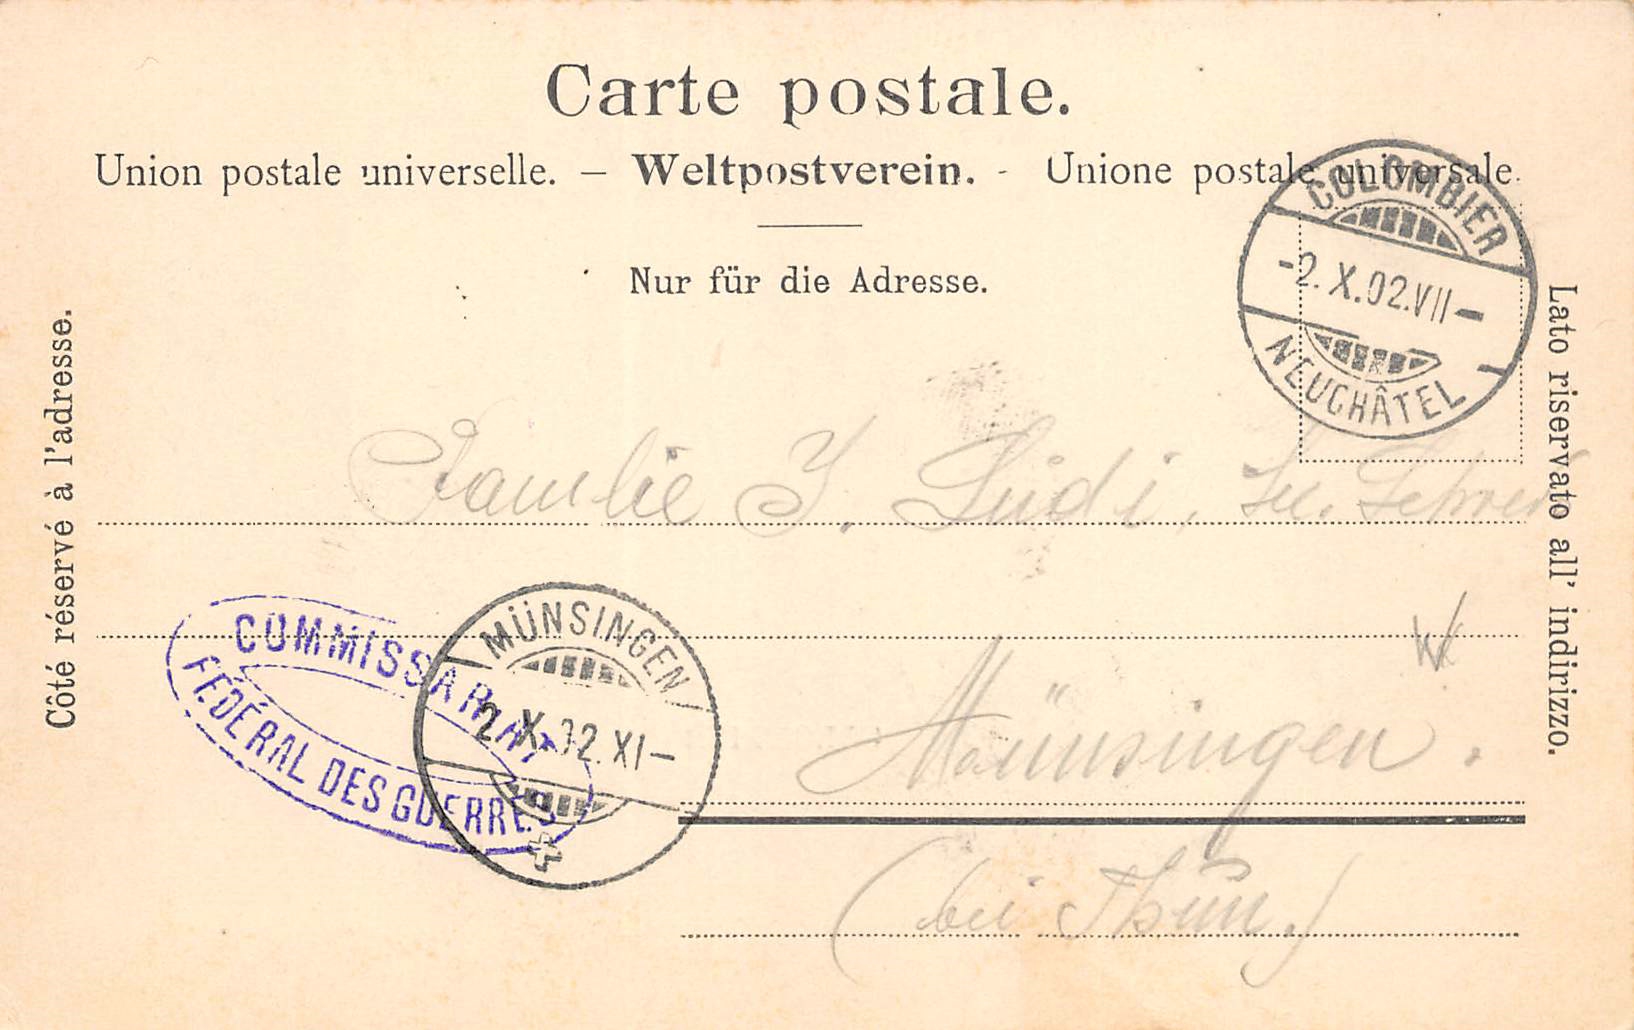 Carte postale.
Union postale universelle. – Weltpostverein. - Unione postale universale.
Nur für die Adresse.
Côté réservé à l'adresse.
Lato riservato all' indirizzo.
COLOMBIER
-2.X.02.VII-
NEUCHÂTEL
Familie J. Lüdi,
COMMISSARIAT
FÉDÉRAL DES GUERRES
MÜNSINGEN
2.X.02.XI-
Münsingen.
(bei Thun.)